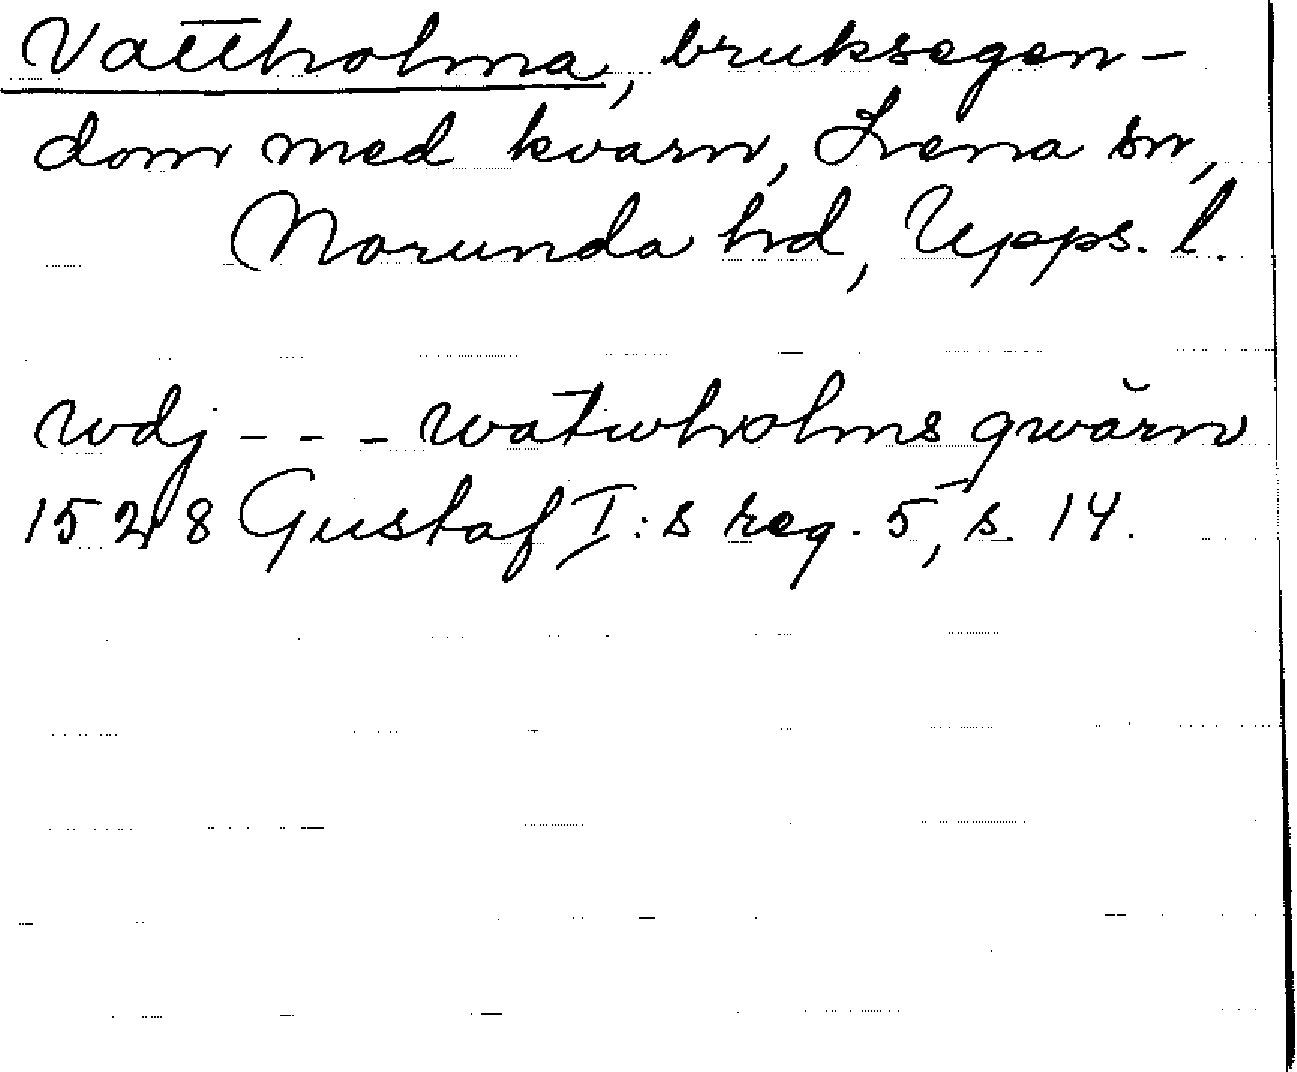 Vattholma, bruksegen-
dom med kvarn, Lena sn,
Norunda hd, Upps. l.
wdj - - - watwholms qwărn
1528 Gustaf I:s reg. 5, s. 14.